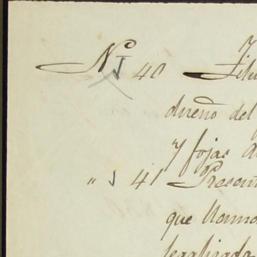 No 40 Titu
dueño del
y fojas d
" 41 Presen
que llamo
legalizada